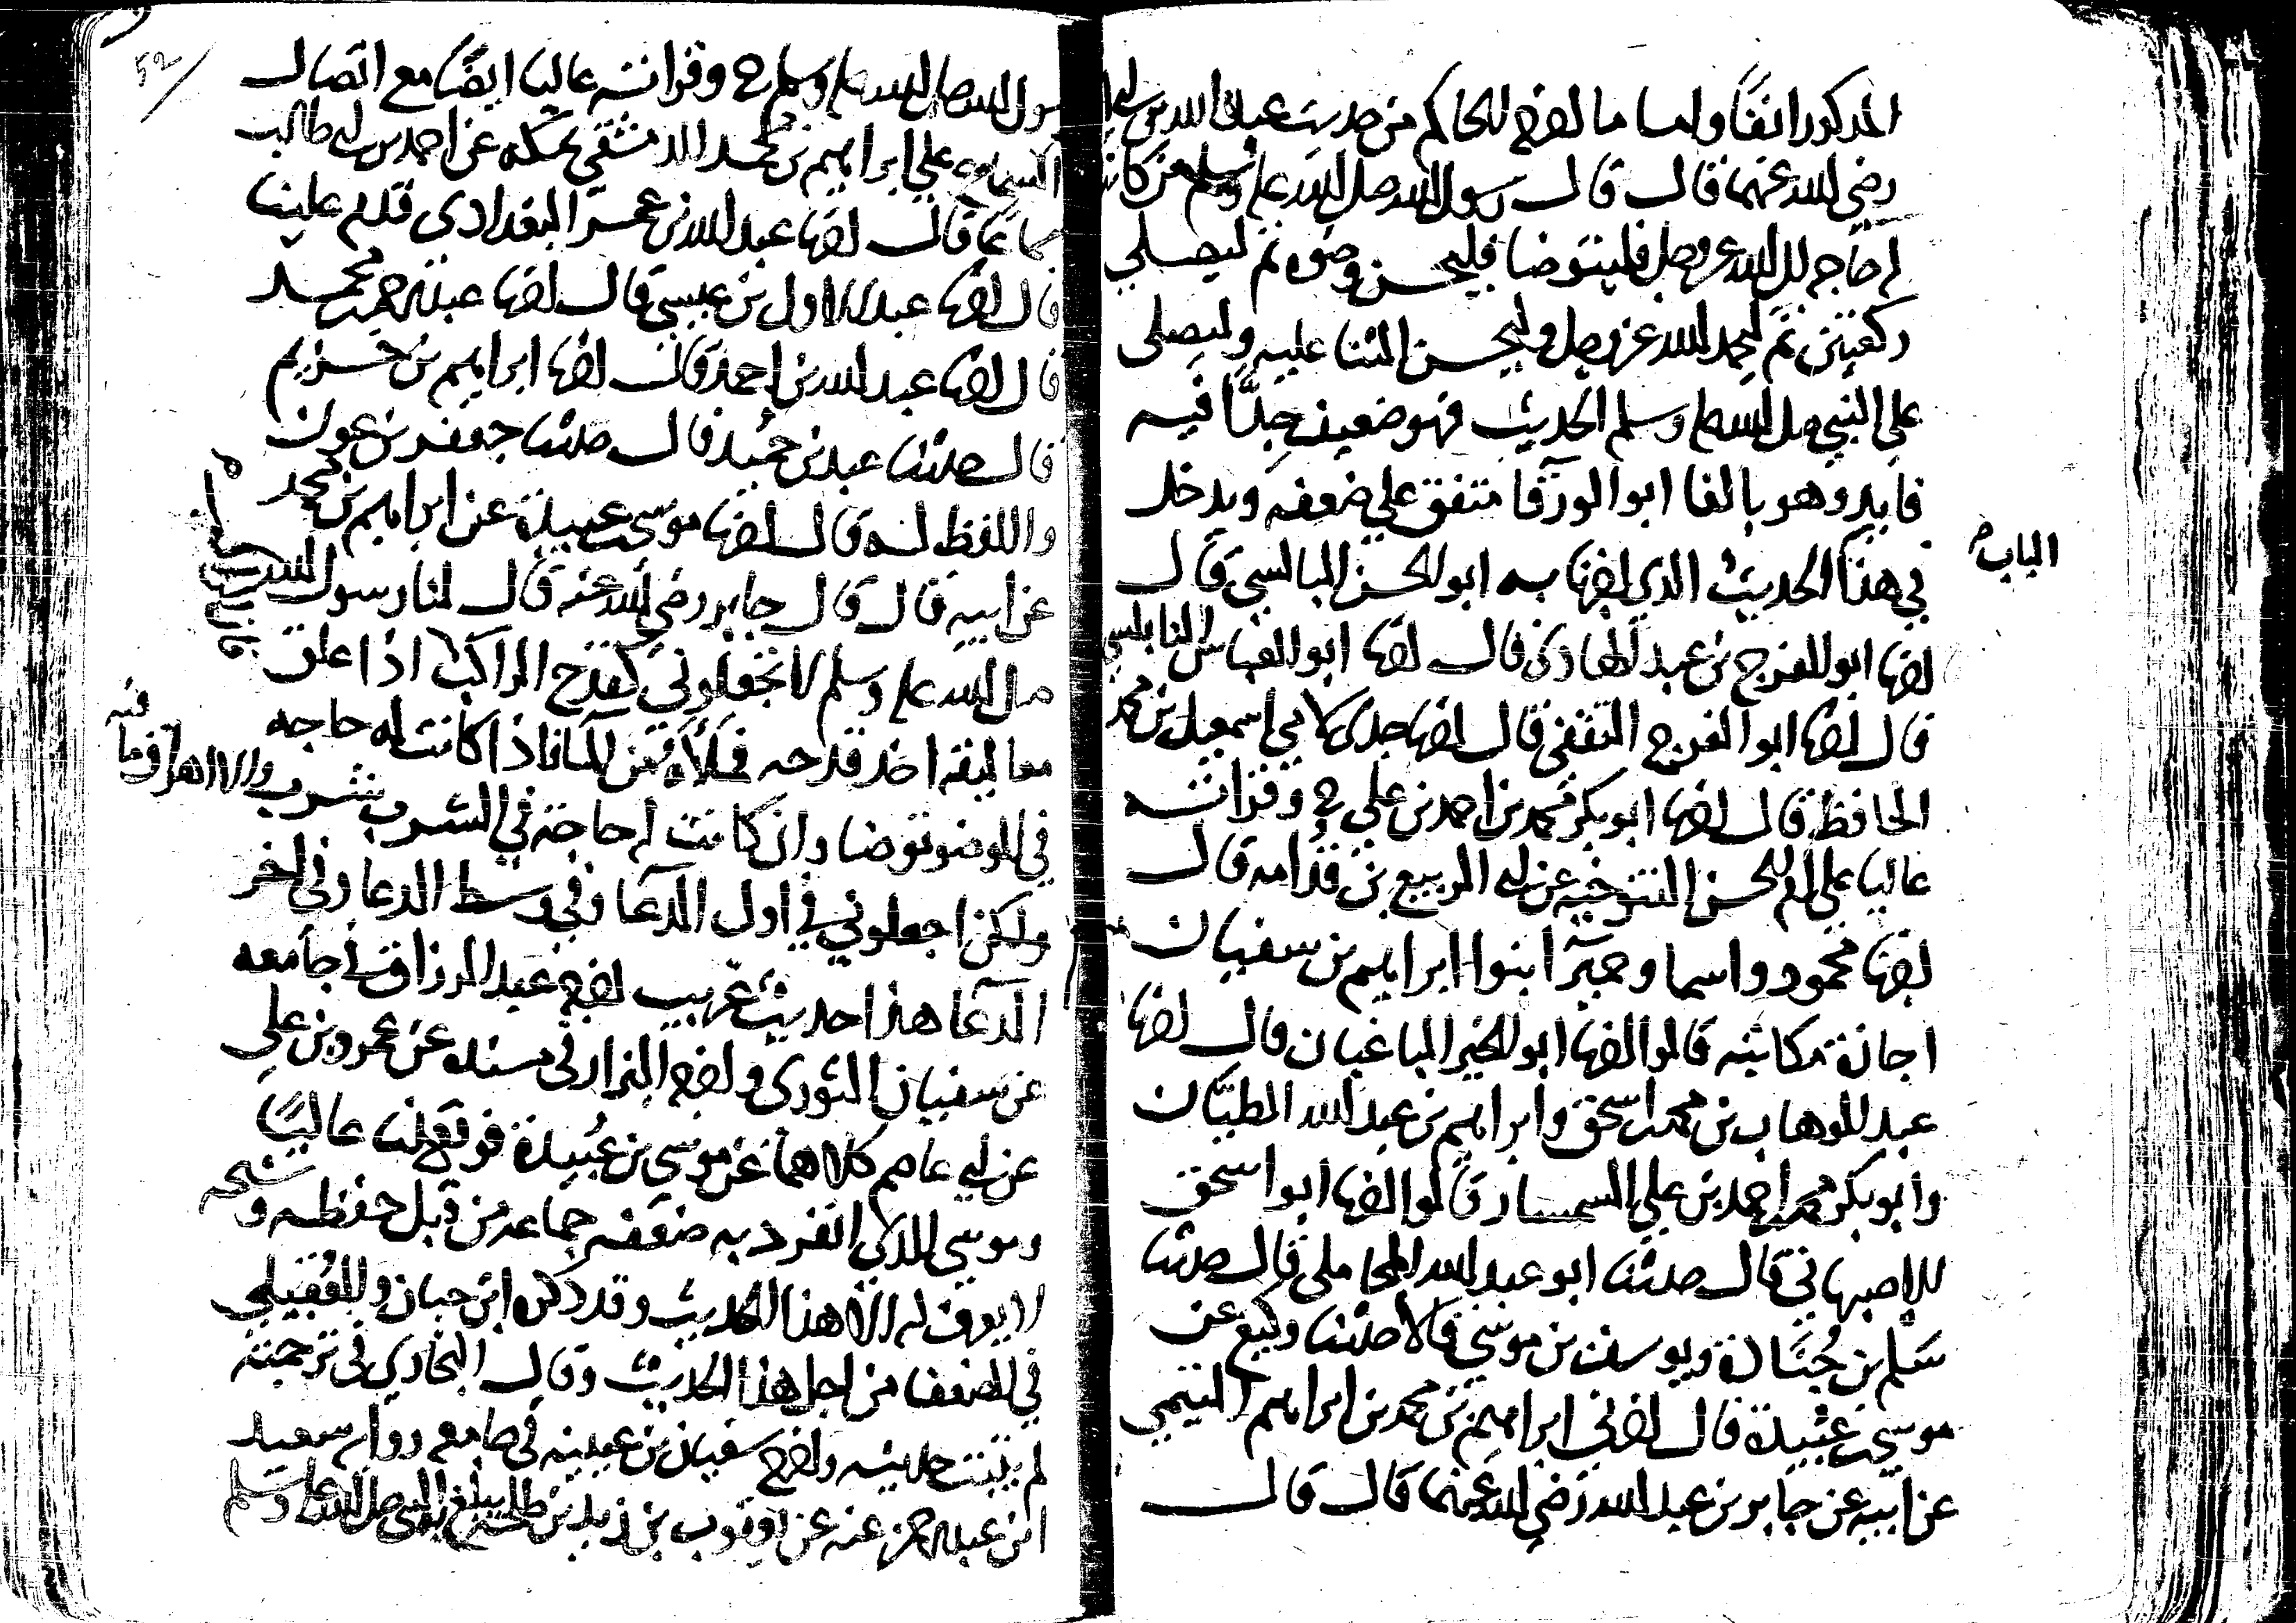 المذكور انفًا واما ما اخرج الحاكم من حديث عبد الله بن ابي
رضي الله عنهما قال قال رسول الله صلى الله عليه وسلم من كانت
له حاجه الى الله عز وجل فليتوضا فليحسن وضوه ثم ليصلي
ركعتين ثم ليحمد الله عز وجل وليحسن الثنا عليه وليصلي
على النبي صلى الله عليه وسلم الحديث فهو ضعيف جدًّا فيه
فايد وهو بالفا ابو الورقا متفق علي ضعفه ويدخل
في هذا الحديث الذي اخبرنا به ابو الحسن البالسي قال
الباب
اخبرنا ابو الفرج بن عبد الهادي قال اخبرنا ابو العباس النابلسي
قال اخبرنا ابو الفرج الثقفي قال اخبرنا جدي لامي اسمعيل بن محمد
الحافظ قال اخبرنا ابو بكر محمد بن احمد بن علي ح وقراته
عاليا على ام الحسن التنوخيه عن ابي الربيع بن قدامه قال
اخبرنا محمود واسما وحميرا بنوا ابراهيم بن سفيان
اجازة مكاتبه قالوا اخبرنا ابو الخير الباغبان قال اخبرنا
عبد الوهاب بن محمد اسحق وابراهيم بن عبد الله الطيان
وابو بكر محمد احمد بن علي السمسار قالوا اخبرنا ابو اسحق
الاصبهاني قال حدثنا ابو عبد الله المحاملي قال حدثنا
سلم بن جُنادة ويوسف بن موسي قالا حدثنا وكيع عن
موسى بن عبيدة قال اخبرني ابراهيم بن محمد بن ابراهيم التيمي
عن ابيه عن جابر بن عبد الله رضي الله عنهما قال قال
رسول الله صلى الله عليه وسلم ح وقراته عاليا ايضًا مع اتصال
السماع علي ابراهيم بن محمد الدمشقي بمكه عن احمد بن ابي طالب
سماعا قال اخبرنا عبد الله بن عمر البغدادي قدم علينا
قال اخبرنا عبد الاول بن عيسي قال اخبرنا عبد الرحمن بن محمد
قال اخبرنا عبد الله بن احمد قال اخبرنا ابراهيم بن خزيم
قال حدثنا عبد بن حُميد قال حدثنا جعفر بن عون
واللفظ له قال اخبرنا موسى بن عبيدة عن ابراهيم بن محمد
عن ابيه قال قال جابر رضي الله عنه قال لنا رسول الله
صلى الله عليه وسلم لا تجعلوني كقدح الراكب اذا علق
معاليقه اخذ قدحه فملأه من الما فاذا كانت له حاجه
في الوضو توضا وان كانت له حاجة في الشرب شرب والا اهراق ما فيه
ولكن اجعلوني في اول الدعا وفي وسط الدعا وفي اخر
الدعا هذا حديث غريب اخرجه عبد الرزاق في جامعه
عن سفيان الثوري واخرجه البزار في مسنده عن عمرو بن علي
عن ابي عاصم كلاهما عن موسي بن عُبيدة فوقع لنا عاليًا
وموسي الذي انفرد به ضعفه جماعه من قبل حفظه وشيخه
لا يعرف له الا هذا الحديث وقد ذكره ابن حبان والعُقيلي
في الضعفا من اجل هذا الحديث وقال البخاري في ترجمته
لم يثبت حديثه واخرج سفيان بن عيينه في جامعه رواية سعيد
ابن عبد الرحمن عنه عن يعقوب بن زيد بن طلحة يبلغ به النبي صلى الله عليه وسلم
52